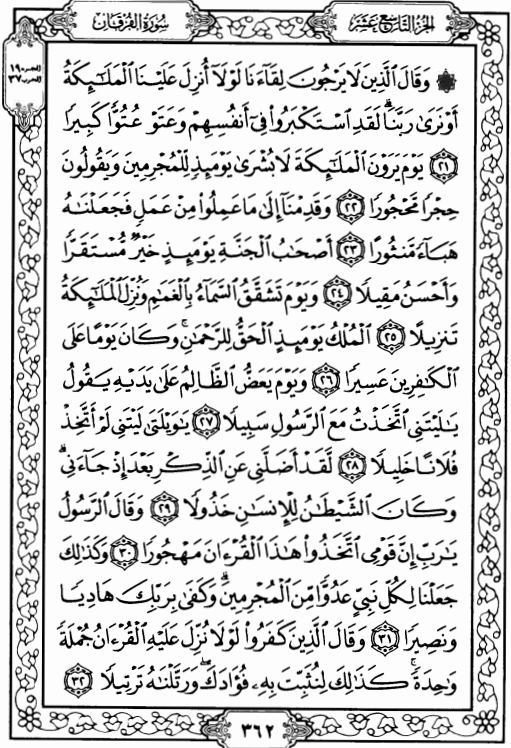 الجزء التاسع عشر
سورة الفرقان
الجزء ١٩
الحزب ٣٧
۞ وَقَالَ ٱلَّذِينَ لَا يَرْجُونَ لِقَآءَنَا لَوْلَآ أُنزِلَ عَلَيْنَا ٱلْمَلَـٰٓئِكَةُ
أَوْ نَرَىٰ رَبَّنَاۗ لَقَدِ ٱسْتَكْبَرُوا۟ فِىٓ أَنفُسِهِمْ وَعَتَوْ عُتُوًّا كَبِيرًا
٢١ يَوْمَ يَرَوْنَ ٱلْمَلَـٰٓئِكَةَ لَا بُشْرَىٰ يَوْمَئِذٍ لِّلْمُجْرِمِينَ وَيَقُولُونَ
حِجْرًا مَّحْجُورًا ٢٢ وَقَدِمْنَآ إِلَىٰ مَا عَمِلُوا۟ مِنْ عَمَلٍ فَجَعَلْنَـٰهُ
هَبَآءً مَّنثُورًا ٢٣ أَصْحَـٰبُ ٱلْجَنَّةِ يَوْمَئِذٍ خَيْرٌ مُّسْتَقَرًّا
وَأَحْسَنُ مَقِيلًا ٢٤ وَيَوْمَ تَشَقَّقُ ٱلسَّمَآءُ بِٱلْغَمَـٰمِ وَنُزِّلَ ٱلْمَلَـٰٓئِكَةُ
تَنزِيلًا ٢٥ ٱلْمُلْكُ يَوْمَئِذٍ ٱلْحَقُّ لِلرَّحْمَـٰنِۚ وَكَانَ يَوْمًا عَلَى
ٱلْكَـٰفِرِينَ عَسِيرًا ٢٦ وَيَوْمَ يَعَضُّ ٱلظَّالِمُ عَلَىٰ يَدَيْهِ يَقُولُ
يَـٰلَيْتَنِى ٱتَّخَذْتُ مَعَ ٱلرَّسُولِ سَبِيلًا ٢٧ يَـٰوَيْلَتَىٰ لَيْتَنِى لَمْ أَتَّخِذْ
فُلَانًا خَلِيلًا ٢٨ لَّقَدْ أَضَلَّنِى عَنِ ٱلذِّكْرِ بَعْدَ إِذْ جَآءَنِىۗ
وَكَانَ ٱلشَّيْطَـٰنُ لِلْإِنسَـٰنِ خَذُولًا ٢٩ وَقَالَ ٱلرَّسُولُ
يَـٰرَبِّ إِنَّ قَوْمِى ٱتَّخَذُوا۟ هَـٰذَا ٱلْقُرْءَانَ مَهْجُورًا ٣٠ وَكَذَٰلِكَ
جَعَلْنَا لِكُلِّ نَبِىٍّ عَدُوًّا مِّنَ ٱلْمُجْرِمِينَۗ وَكَفَىٰ بِرَبِّكَ هَادِيًا
وَنَصِيرًا ٣١ وَقَالَ ٱلَّذِينَ كَفَرُوا۟ لَوْلَا نُزِّلَ عَلَيْهِ ٱلْقُرْءَانُ جُمْلَةً
وَٰحِدَةًۚ كَذَٰلِكَ لِنُثَبِّتَ بِهِۦ فُؤَادَكَۖ وَرَتَّلْنَـٰهُ تَرْتِيلًا ٣٢
٣٦٢